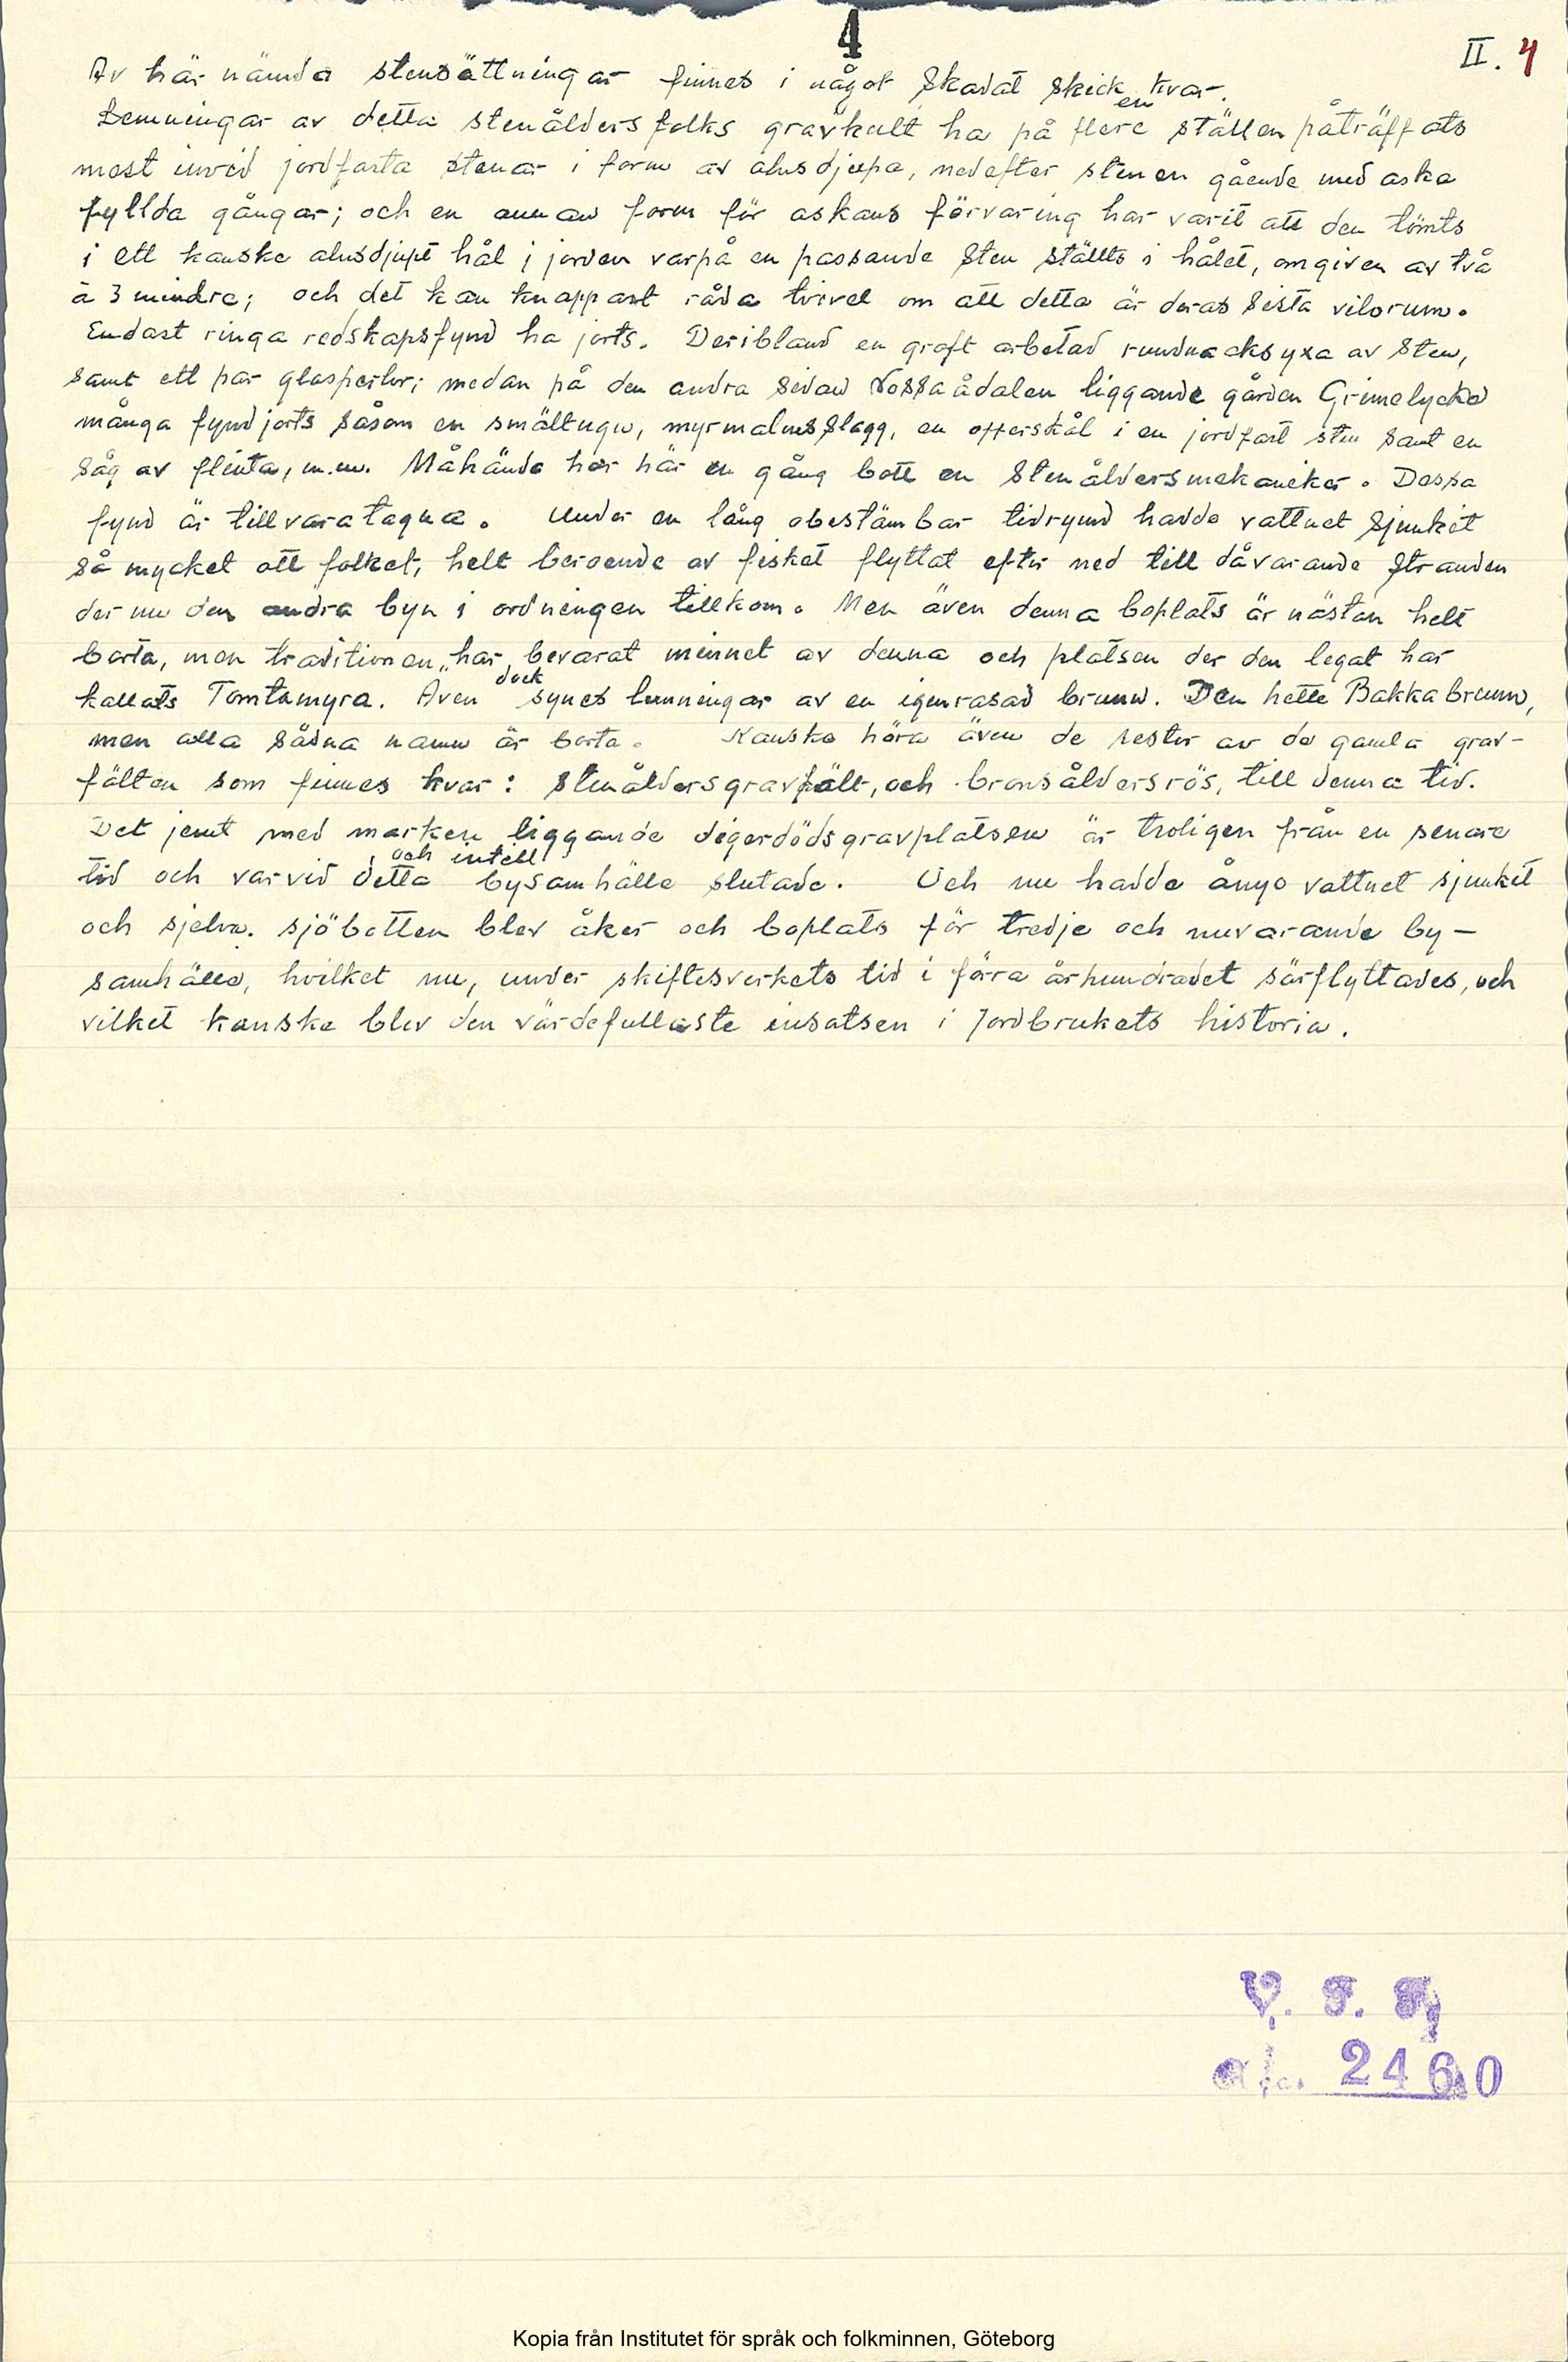 4
II. 4
Av här nämda stensättningar finnes i något skadat skick en kvar.
Lemningar av detta stenålders folks gravkult ha på flere ställen påträffats
mest invid jordfasta stenar i form av alnsdjupa, nedefter stenen gående med aska
fyllda gångar; och en annan form för askans förvaring har varit att den tömts
i ett kanske alnsdjupt hål i jorden varpå en passande sten ställts i hålet, omgiven av två
à 3 mindre; och det kan knappast råda tvivel om att detta är deras sista vilorum.
Endast ringa redskapsfynd ha jorts. Deribland en groft arbetad rundnacksyxa av sten,
samt ett par glasperlor; medan på den andra sidan Nossaådalen liggande gården Grimelycke
många fynd jorts såsom en smältugn, myrmalmsslagg, en offerskål i en jordfast sten samt en
såg av flinta, m.m. Måhända har här en gång bott en stenåldersmekaniker. Dessa
fynd är tillvaratagna. Under en lång obestämbar tidrymd hadde vattnet sjunkit
så mycket att folket, helt beroende av fisket flyttat efter ned till dåvarande stranden
der nu den andra byn i ordningen tillkom. Men även denna boplats är nästan helt
borta, men traditionen har bevarat minnet av denna och platsen der den legat har
kallats Tomtamyra. Även dock synes lemningar av en igenrasad brunn. Den hette Bakkabrunn,
men alla sådna namn är borta. Kanske höra även de rester av de gamla grav-
fälten som finnes kvar: stenåldersgravfält, och bronsåldersrös, till denna tid.
Det jemt med marken liggande digerdödsgravplatsen är troligen från en senare
tid och varvid detta och intill bysamhälle slutade. Och nu hadde ånyo vattnet sjunkit
och sjelva sjöbotten blev åker och boplats för tredje och nuvarande by-
samhälle, hvilket nu, under skiftesverkets tid i förra århundradet särflyttades, och
vilket kanske blev den värdefullaste insatsen i Jordbrukets historia.
V. F. F.
2460
Kopia från Institutet för språk och folkminnen, Göteborg